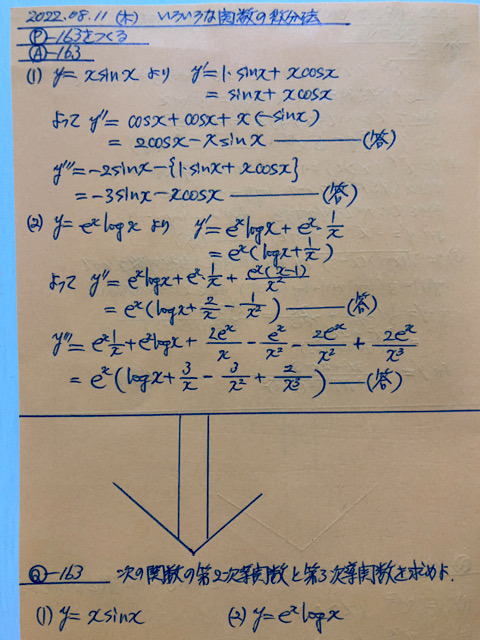 2022.08.11 (木) いろいろな関数の微分法
Ⓟ-163をつくる
Ⓐ-163
(1) y = xsinx より y' = 1·sinx + xcosx
= sinx + xcosx
よって y'' = cosx + cosx + x(-sinx)
= 2cosx - xsinx ――― (答)
y''' = -2sinx - {1·sinx + xcosx}
= -3sinx - xcosx ――― (答)
(2) y = e^x logx より y' = e^x logx + e^x · 1/x
= e^x (logx + 1/x)
よって y'' = e^x logx + e^x · 1/x + e^x(x-1)/x^2
= e^x (logx + 2/x - 1/x^2) ――― (答)
y''' = e^x 1/x + e^x logx + 2e^x/x - e^x/x^2 - 2e^x/x^2 + 2e^x/x^3
= e^x (logx + 3/x - 3/x^2 + 2/x^3) ――― (答)
Ⓠ-163 次の関数の第2次導関数と第3次導関数を求めよ.
(1) y = xsinx (2) y = e^x logx